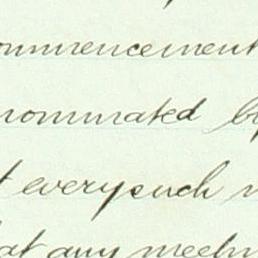 ommencement
nominated by
every such
at any meetin